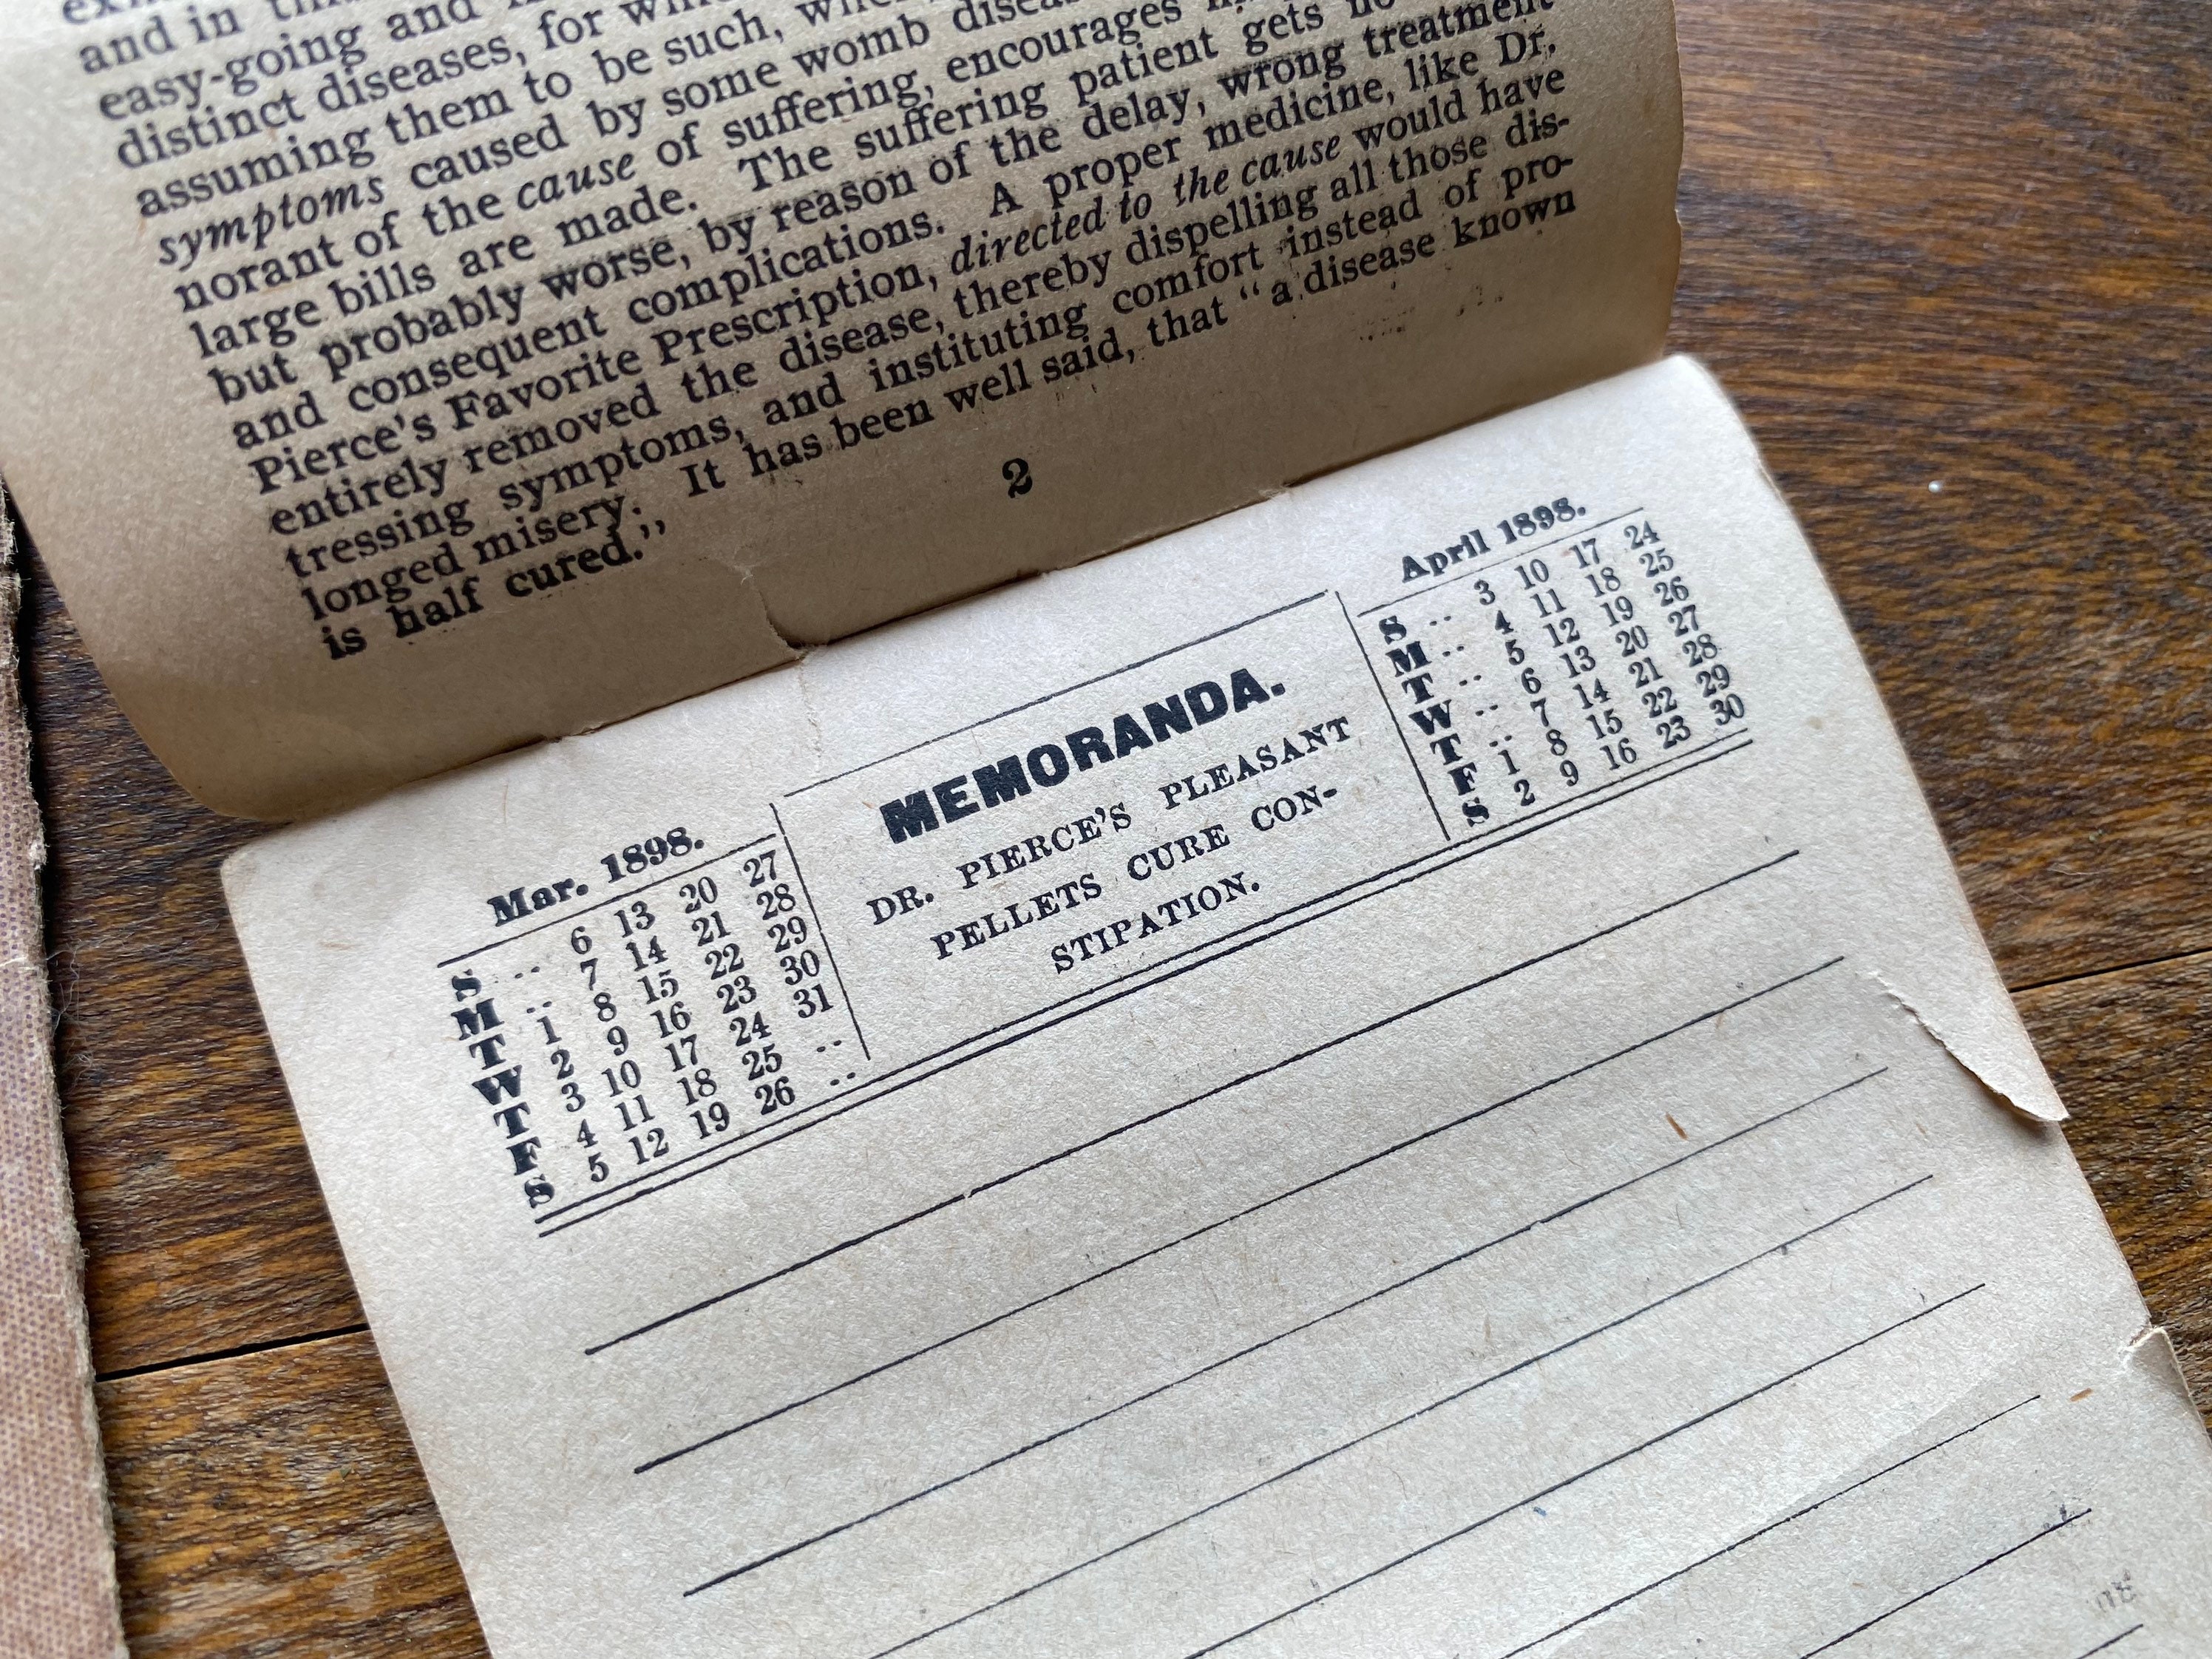 and in
easy-going and
distinct diseases, for
assuming them to be such,
symptoms caused by some womb
norant of the cause of suffering, encourages
large bills are made. The suffering patient gets
but probably worse, by reason of the delay, wrong treatment
and consequent complications. A proper medicine, like Dr.
Pierce's Favorite Prescription, directed to the cause would have
entirely removed the disease, thereby dispelling all those dis-
tressing symptoms, and instituting comfort instead of pro-
longed misery. It has been well said, that “a disease known
is half cured.”
2
Mar. 1898.
S .. 6 13 20 27
M .. 7 14 21 28
T 1 8 15 22 29
W 2 9 16 23 30
T 3 10 17 24 31
F 4 11 18 25 ..
S 5 12 19 26 ..
MEMORANDA.
DR. PIERCE'S PLEASANT
PELLETS CURE CON-
STIPATION.
April 1898.
S .. 3 10 17 24
M .. 4 11 18 25
T .. 5 12 19 26
W .. 6 13 20 27
T .. 7 14 21 28
F 1 8 15 22 29
S 2 9 16 23 30